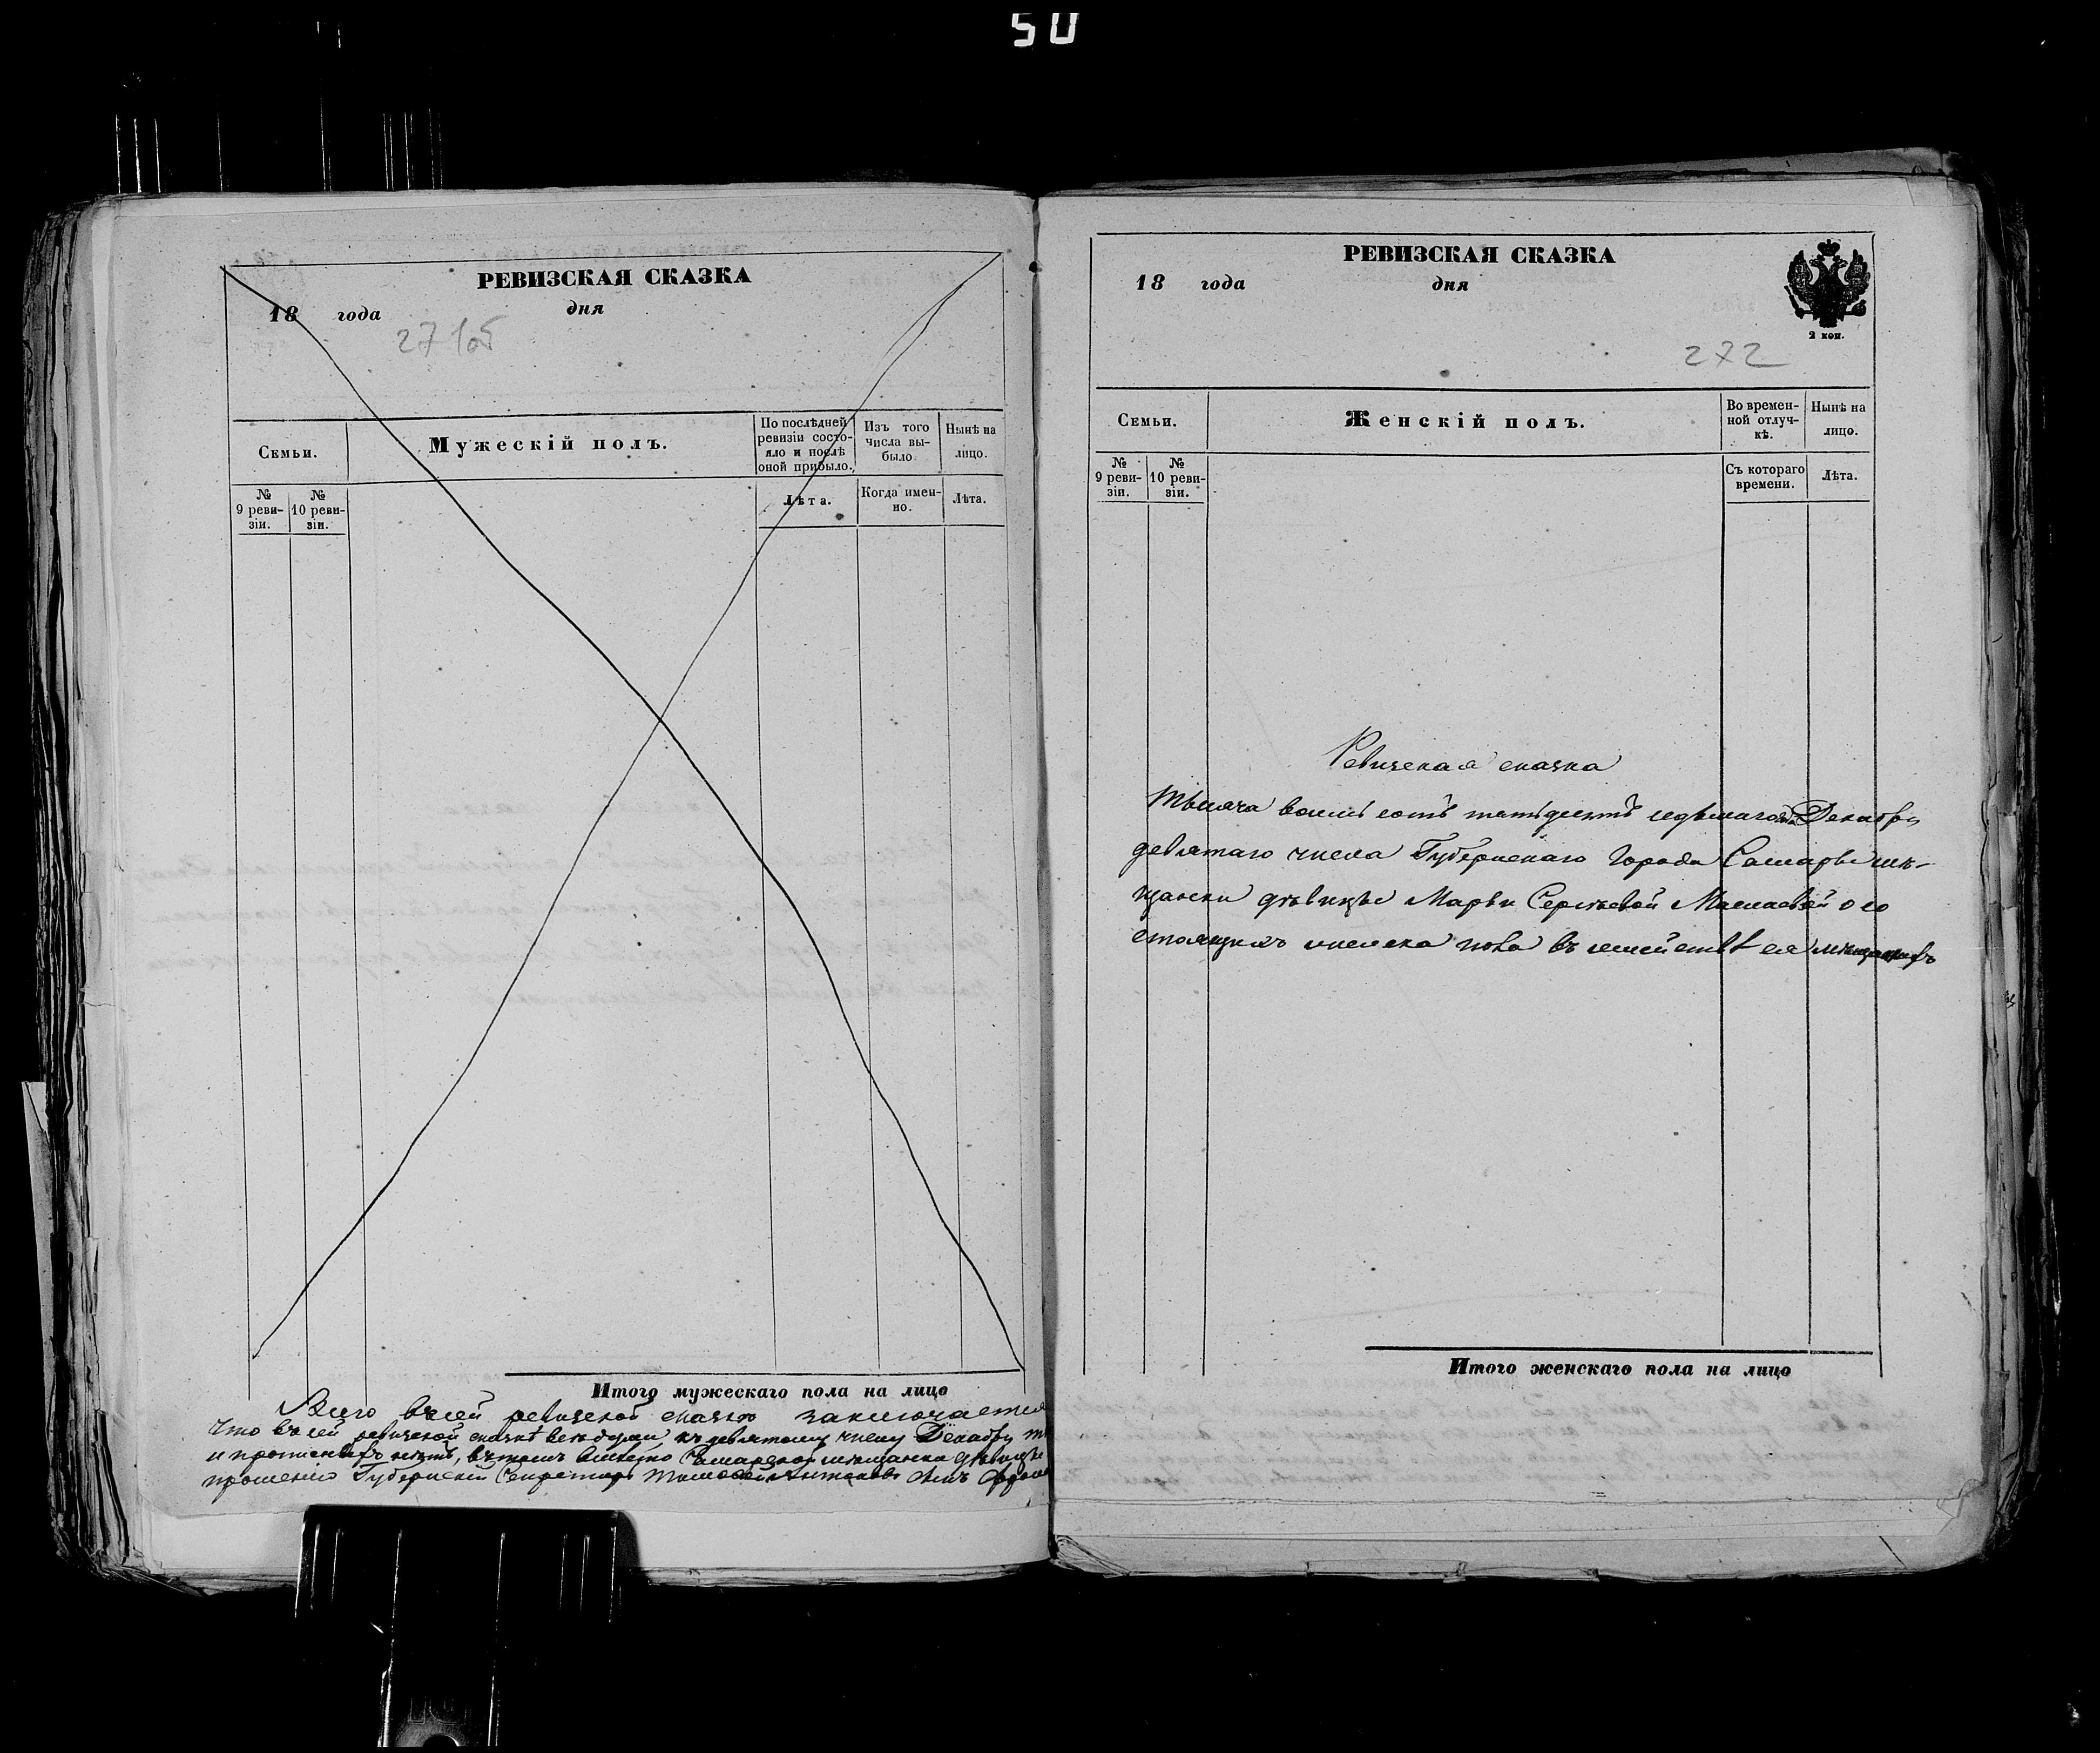 50
РЕВИЗСКАЯ СКАЗКА
18 года дня
271об
Семьи.
Мужескій полъ.
По послѣдней ревизіи состояло и послѣ оной прибыло.
Изъ того числа выбыло
Нынѣ на лицо.
№ 9 ревизіи.
№ 10 ревизіи.
Лѣта.
Когда именно.
Лѣта.
Итого мужескаго пола на лицо
Всего въ сей ревизской сказкѣ заключается
Что въ сей ревизской сказкѣ всѣ души къ девятому числу Декабря
и прописныхъ нѣтъ, въ томъ вмѣсто Самарской мѣщанки дѣвицы
прошенію Губернскій Секретарь
РЕВИЗСКАЯ СКАЗКА
18 года дня
2 коп.
272
Семьи.
Женскій полъ.
Во временной отлучкѣ.
Нынѣ на лицо.
№ 9 ревизіи.
№ 10 ревизіи.
Съ котораго времени.
Лѣта.
Ревизская сказка
Тысяча восемь сотъ пятьдесятъ седьмаго Декабря
девятаго числа Губернскаго Города Самары мѣ-
щанки дѣвицы Марьи Сергѣевой о со
стоящихъ пола въ семействѣ ея мѣщанахъ
Итого женскаго пола на лицо